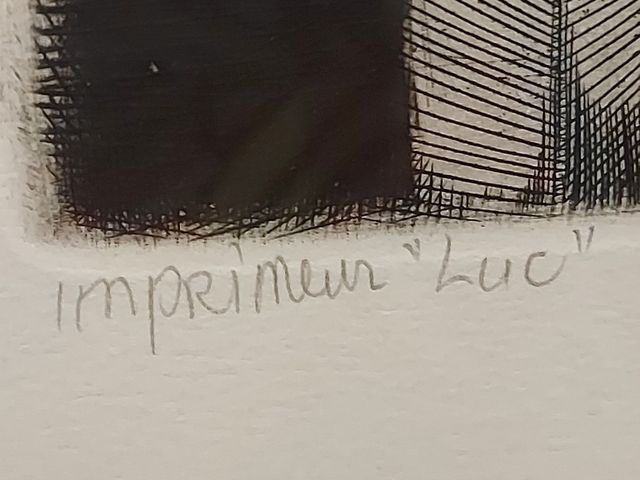 Imprimeur "Luc"